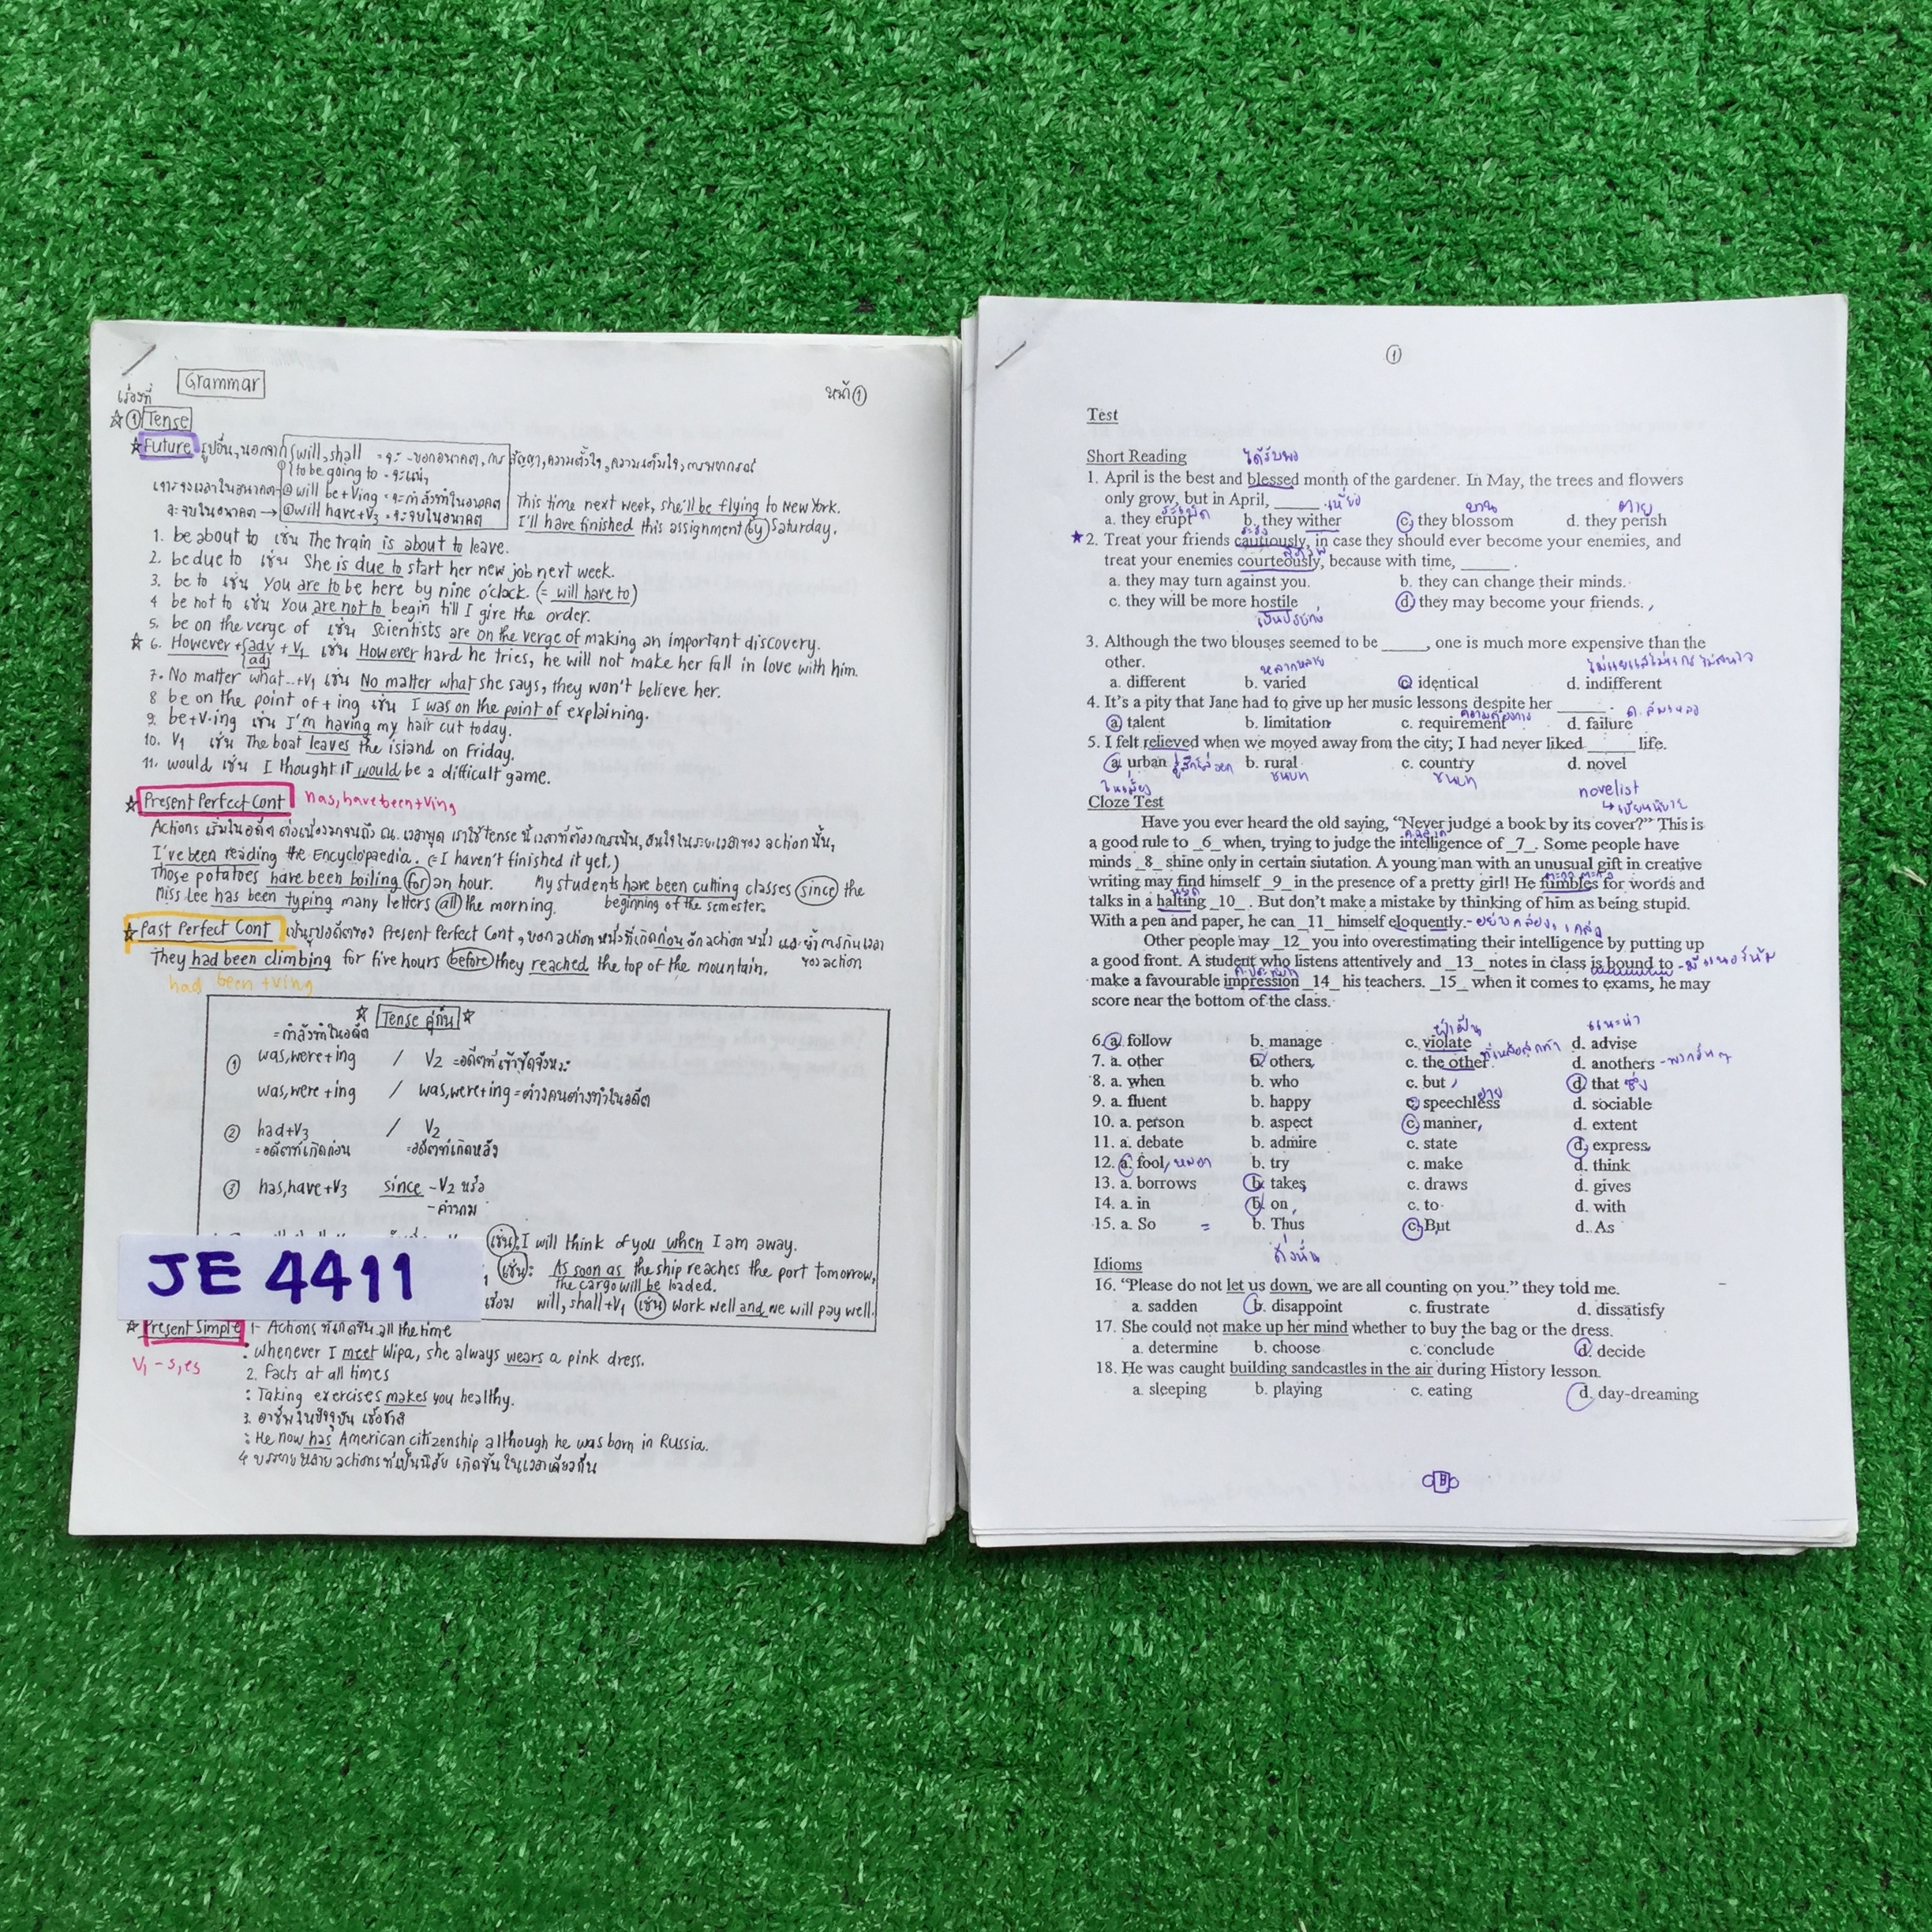 Grammar
เรื่องที่ หน้า ①
☆ ① Tense
☆ Future รูปอื่น, นอกจาก will, shall = จะ - บอกอนาคต, การสัญญา, ความตั้งใจ, ความเต็มใจ, การพยากรณ์
to be going to = จะแน่ๆ
เจาะจงเวลาในอนาคต - will be + Ving = จะกำลังทำในอนาคต This time next week, she'll be flying to New York.
จะจบในอนาคต → will have + V3 = จะจบในอนาคต I'll have finished this assignment by Saturday.
1. be about to เช่น The train is about to leave.
2. be due to เช่น She is due to start her new job next week.
3. be to เช่น You are to be here by nine o'clock. (= will have to)
4 be not to เช่น You are not to begin till I give the order.
5. be on the verge of เช่น Scientists are on the verge of making an important discovery.
☆ 6. However + adv + V1 เช่น However hard he tries, he will not make her fall in love with him.
adj
7. No matter what...+V1 เช่น No matter what she says, they won't believe her.
8 be on the point of + ing เช่น I was on the point of explaining.
9. be+V-ing เช่น I'm having my hair cut today.
10. V1 เช่น The boat leaves the island on Friday.
11. would เช่น I thought it would be a difficult game.
☆ Present Perfect Cont has, have been + Ving
Actions เริ่มในอดีต ต่อเนื่องมาจนถึง ณ. เวลาพูด เราใช้ tense นี้ เวลาที่ต้องการเน้น, สนใจในระยะเวลาของ action นั้น,
I've been reading the Encyclopaedia. (= I haven't finished it yet.)
Those potatoes have been boiling for an hour. My students have been cutting classes since the
Miss Lee has been typing many letters all the morning. beginning of the semester.
☆ Past Perfect Cont เป็นรูปอดีตของ Present Perfect Cont, บอก action หนึ่งที่เกิดก่อนอีก action หนึ่ง และย้ำการกินเวลา
They had been climbing for five hours before they reached the top of the mountain. ของ action
had been + Ving
☆ Tense คู่กัน ☆
= กำลังทำในอดีต
① was, were + ing / V2 = อดีตที่เข้าขัดจังหวะ
was, were + ing / was, were + ing = ต่างคนต่างทำในอดีต
② had + V3 / V2
= อดีตที่เกิดก่อน = อดีตที่เกิดหลัง
③ has, have + V3 since - V2 หรือ
เช่น: I will think of you when I am away.
JE 4411
เช่น: As soon as the ship reaches the port tomorrow,
the cargo will be loaded.
เชื่อม will, shall + V1 เช่น Work well and we will pay well.
☆ Present Simple 1- Actions ที่เกิดขึ้น all the time
V1 - s, es : Whenever I meet Wipa, she always wears a pink dress.
2. Facts at all times
: Taking exercises makes you healthy.
3. อาชีพในปัจจุบัน เชื้อชาติ
: He now has American citizenship although he was born in Russia.
4 บรรยายหลาย actions ที่เป็นนิสัย เกิดขึ้นในเวลาเดียวกัน
①
Test
Short Reading ได้รับพร
1. April is the best and blessed month of the gardener. In May, the trees and flowers
only grow, but in April, _____ เหี่ยว บาน ตาย
a. they erupt b. they wither c. they blossom d. they perish
★2. Treat your friends cautiously, in case they should ever become your enemies, and
treat your enemies courteously, because with time, _____ .
a. they may turn against you. b. they can change their minds.
c. they will be more hostile d. they may become your friends.
3. Although the two blouses seemed to be _____, one is much more expensive than the
other. หลากหลาย
a. different b. varied c. identical d. indifferent
4. It's a pity that Jane had to give up her music lessons despite her _____ .
a. talent b. limitation c. requirement d. failure
5. I felt relieved when we moved away from the city; I had never liked _____ life.
a. urban b. rural c. country d. novel
ในเมือง ชนบท ชนบท novelist
Cloze Test → เขียนนิยาย
Have you ever heard the old saying, "Never judge a book by its cover?" This is
a good rule to _6_ when, trying to judge the intelligence of _7_. Some people have
minds _8_ shine only in certain siutation. A young man with an unusual gift in creative
writing may find himself _9_ in the presence of a pretty girl! He fumbles for words and
talks in a halting _10_ . But don't make a mistake by thinking of him as being stupid.
With a pen and paper, he can _11_ himself eloquently.
Other people may _12_ you into overestimating their intelligence by putting up
a good front. A student who listens attentively and _13_ notes in class is bound to
make a favourable impression _14_ his teachers. _15_ when it comes to exams, he may
score near the bottom of the class.
แนะนำ
6. a. follow b. manage c. violate d. advise
7. a. other b. others c. the other d. anothers
8. a. when b. who c. but d. that ซึ่ง
9. a. fluent b. happy c. speechless d. sociable
10. a. person b. aspect c. manner d. extent
11. a. debate b. admire c. state d. express
12. a. fool b. try c. make d. think
13. a. borrows b. takes c. draws d. gives
14. a. in b. on c. to d. with
15. a. So = b. Thus c. But d. As
ดังนั้น
Idioms
16. "Please do not let us down, we are all counting on you." they told me.
a. sadden b. disappoint c. frustrate d. dissatisfy
17. She could not make up her mind whether to buy the bag or the dress.
a. determine b. choose c. conclude d. decide
18. He was caught building sandcastles in the air during History lesson.
a. sleeping b. playing c. eating d. day-dreaming